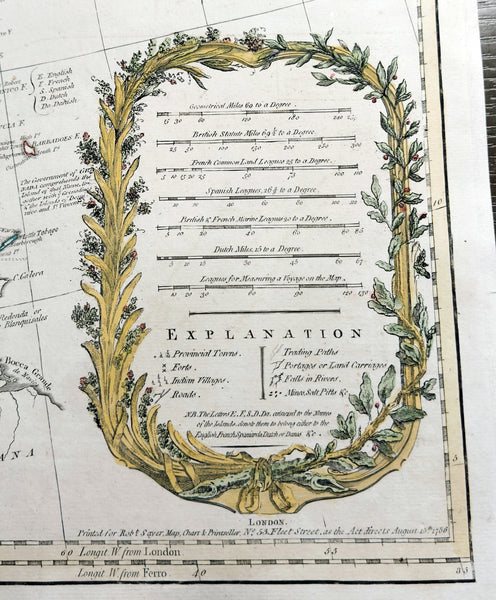 E. English
F. French
S. Spanish
D. Dutch
Da. Danish
BARBADOES E.
The Government of GRE
NADA comprehends the
Island of that Name, to
gether with y.e Grenadines
the Islands of Domi
nico, and S.t Vincent
Tobago
P.t Galera
Redonda or
Blanquisales
Bocca Grande
ANA
Geometrical Miles 60 to a Degree.
15 30 60 100 140 180 240
British Statute Miles 69½ to a Degree.
25 50 100 150 200 250 300
French Common Land Leagues 25 to a Degree.
5 10 25 50 75 100
Spanish Leagues, 26½ to a Degree.
10 20 40 60 80 100
British & French Marine Leagues 20 to a Degree.
5 10 20 40 60 80
Dutch Miles, 15 to a Degree.
15 30 45 60
Leagues for Measuring a Voyage on the Map.
10 20 30 60 90 120 150
EXPLANATION
Provincial Towns.
Forts.
Indian Villages.
Roads.
Trading Paths
Portages or Land Carriages
Falls in Rivers.
Mines, Salt Pitts &c.
NB. The Letters E, F, S, D, Da. annexed to the Names
of the Islands, denote them to belong either to the
English, French, Spaniards, Dutch or Danes &c.
10
5
LONDON.
Printed for Rob.t Sayer, Map, Chart & Printseller, N.o 53, Fleet Street, as the Act directs August 15.th 1786
60 Longit W. from London 55
Longit W. from Ferro 40 35